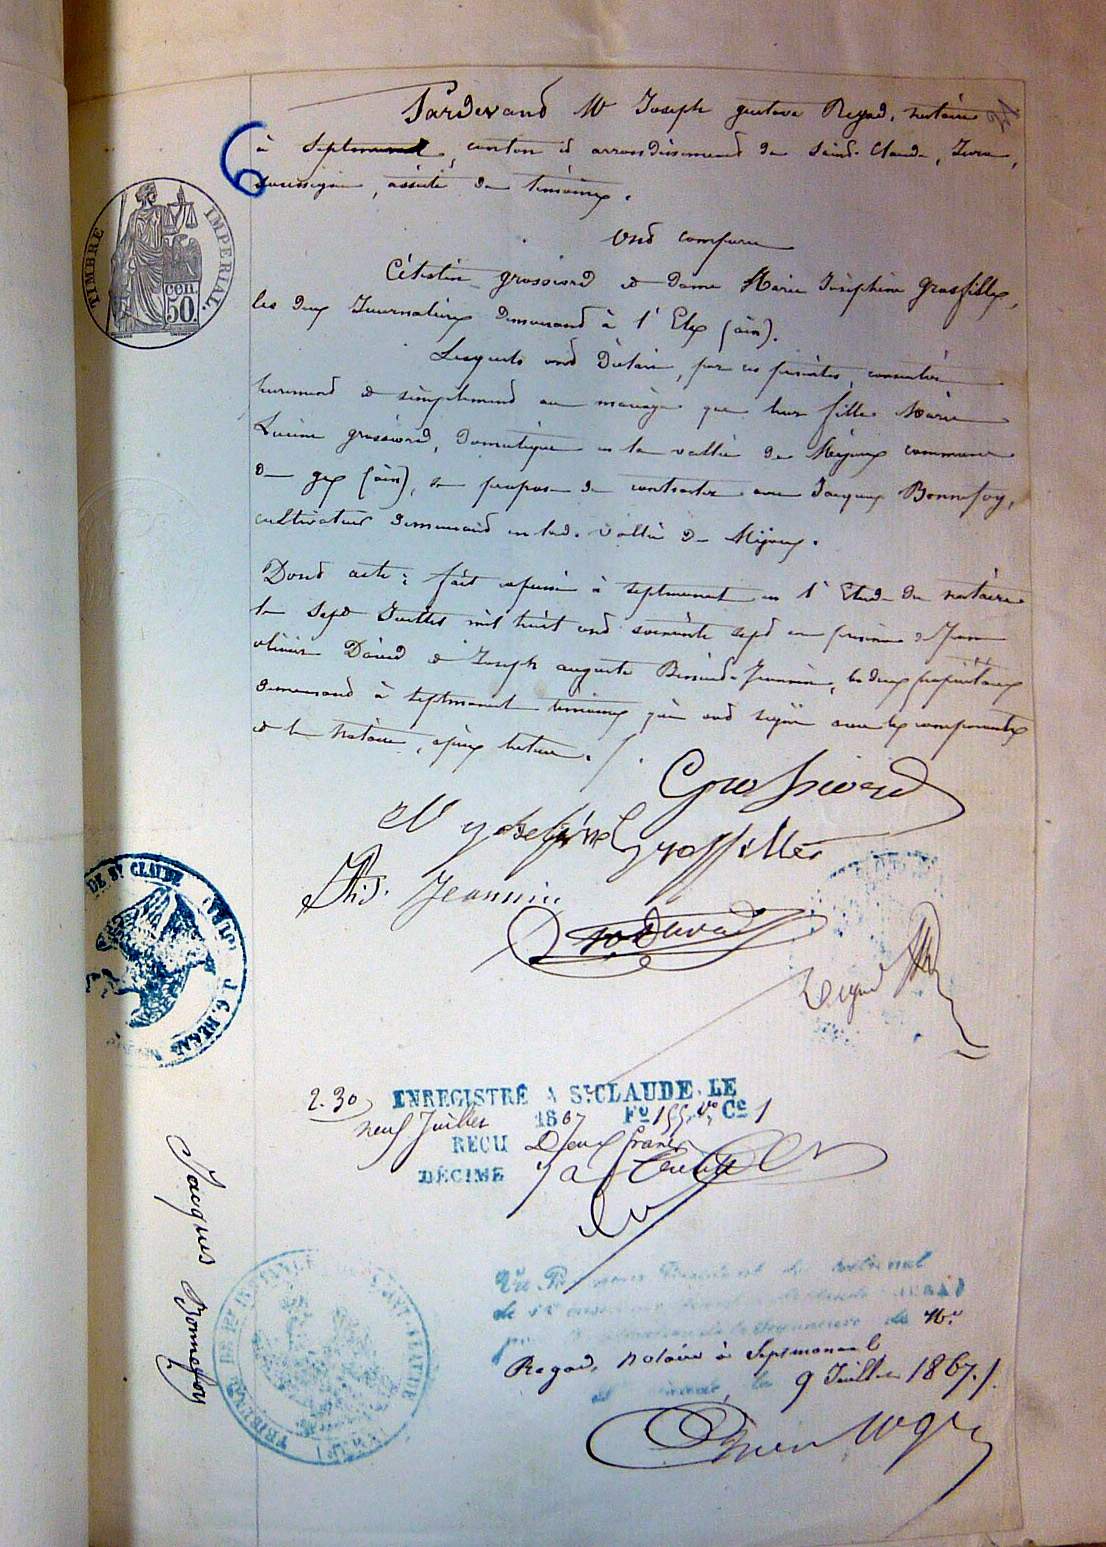 Pardevand Me Joseph gustave Regad, notaire
à Septmoncel, canton et arrondissement de Saint-Claude, Jura,
soussigné, assisté de témoins.
Ond comparu
Célestin grossiord et dame Marie Joséphine grosfillex,
les deux Journaliers demeurand à l'Elex (ain).
Lesquels ond déclaré, par ces présentes, consentir
purement et simplement au mariage que leur fille Marie
Lucine grossiord, domestique en la vallée de Mijoux commune
de gex (ain), se propose de contracter avec Jacques Bonnefoy,
cultivateur demeurand en lad. vallée de Mijoux.
Dond acte: fait et passé à septmoncel en l'Etude du notaire
le Sept Juillet mil huit cend soixante sept en présence de Jean
olivier David et Joseph auguste Jeannin, les deux propriétaires
demeurand à septmoncel témoins qui ond signé avec les comparants
et le notaire, après lecture.
6
TIMBRE IMPERIAL.
50 cen
Grossiord
M josephine Grosfillex
Jeannin
David
Regad
DE ST CLAUDE (JURA) J. G. REGAD
2.30
ENREGISTRÉ A St CLAUDE, LE
neuf Juillet 1867 Fo 155 Vo Ce 1
RECU Deux francs
DÉCIME
Jacques Bonnefoy
TRIBUNAL DE 1re INSTANCE DE SAINT-CLAUDE (JURA)
Vu Par nous Président du tribunal
de Me
Regad, notaire à Septmoncel
le 9 Juillet 1867.